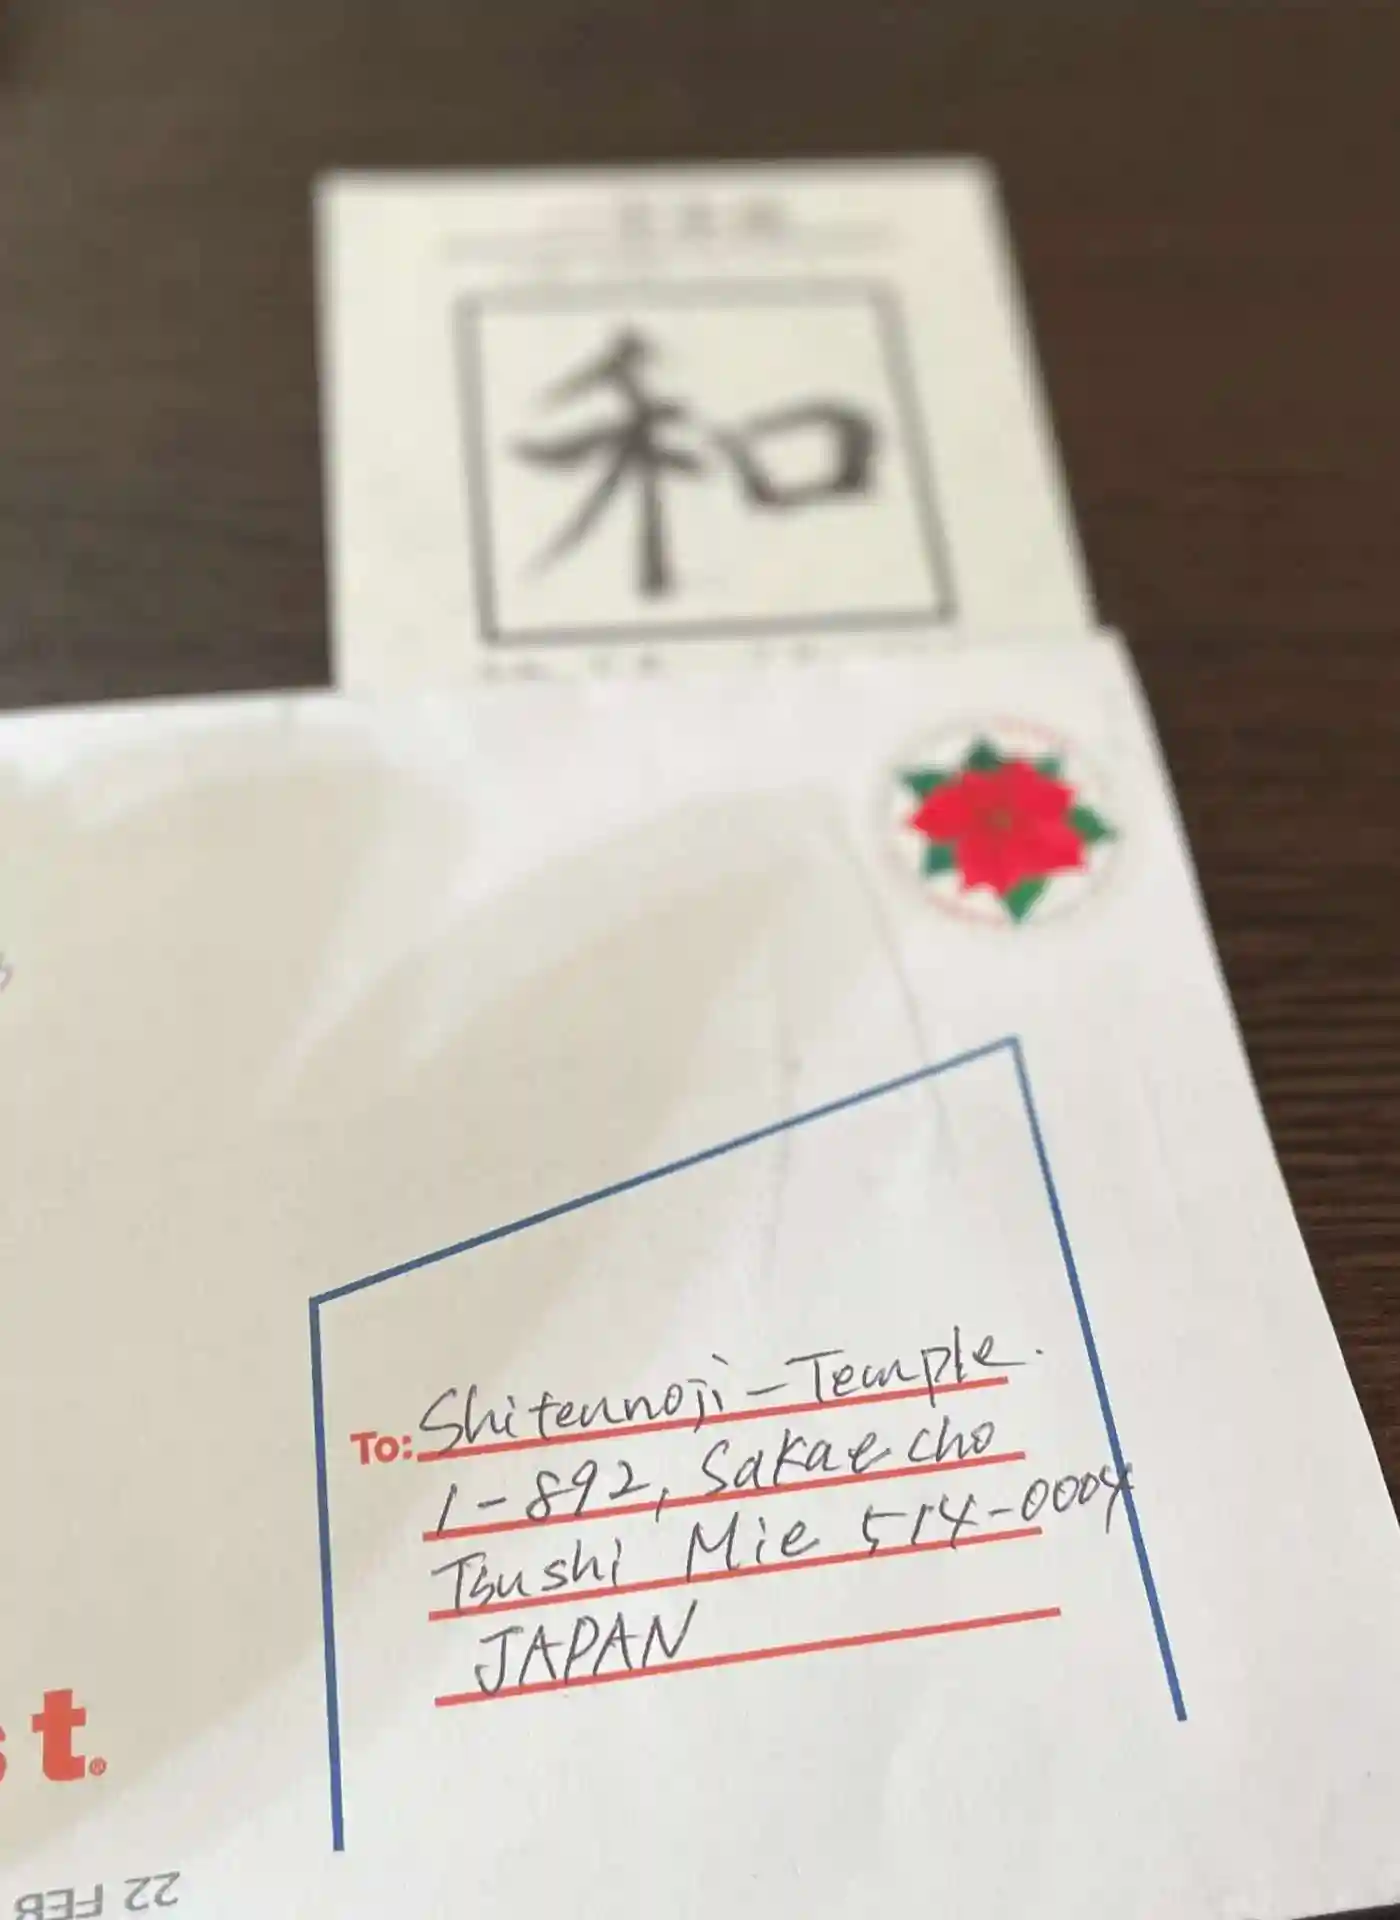 和
To: Shitennoji-Temple.
1-892, Sakae cho
Tsushi Mie 514-0004
JAPAN
t.
22 FEB